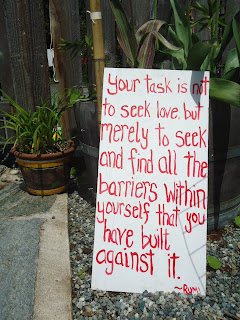 your task is not
to seek love, but
merely to seek
and find all the
barriers within
yourself that you
have built
against it.
~RUMI